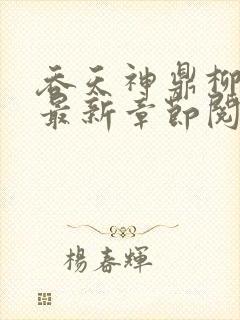 吞天神鼎柳
最新章節閱
楊春輝